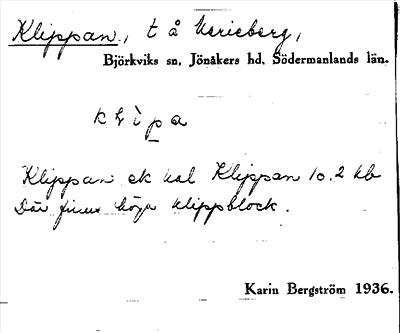 Klippan, t å Marieberg,
Björkviks sn, Jönåkers hd, Södermanlands län.
Klippan ek kal Klippan 10.2 kb
Där finns höga klippblock.
Karin Bergström 1936.